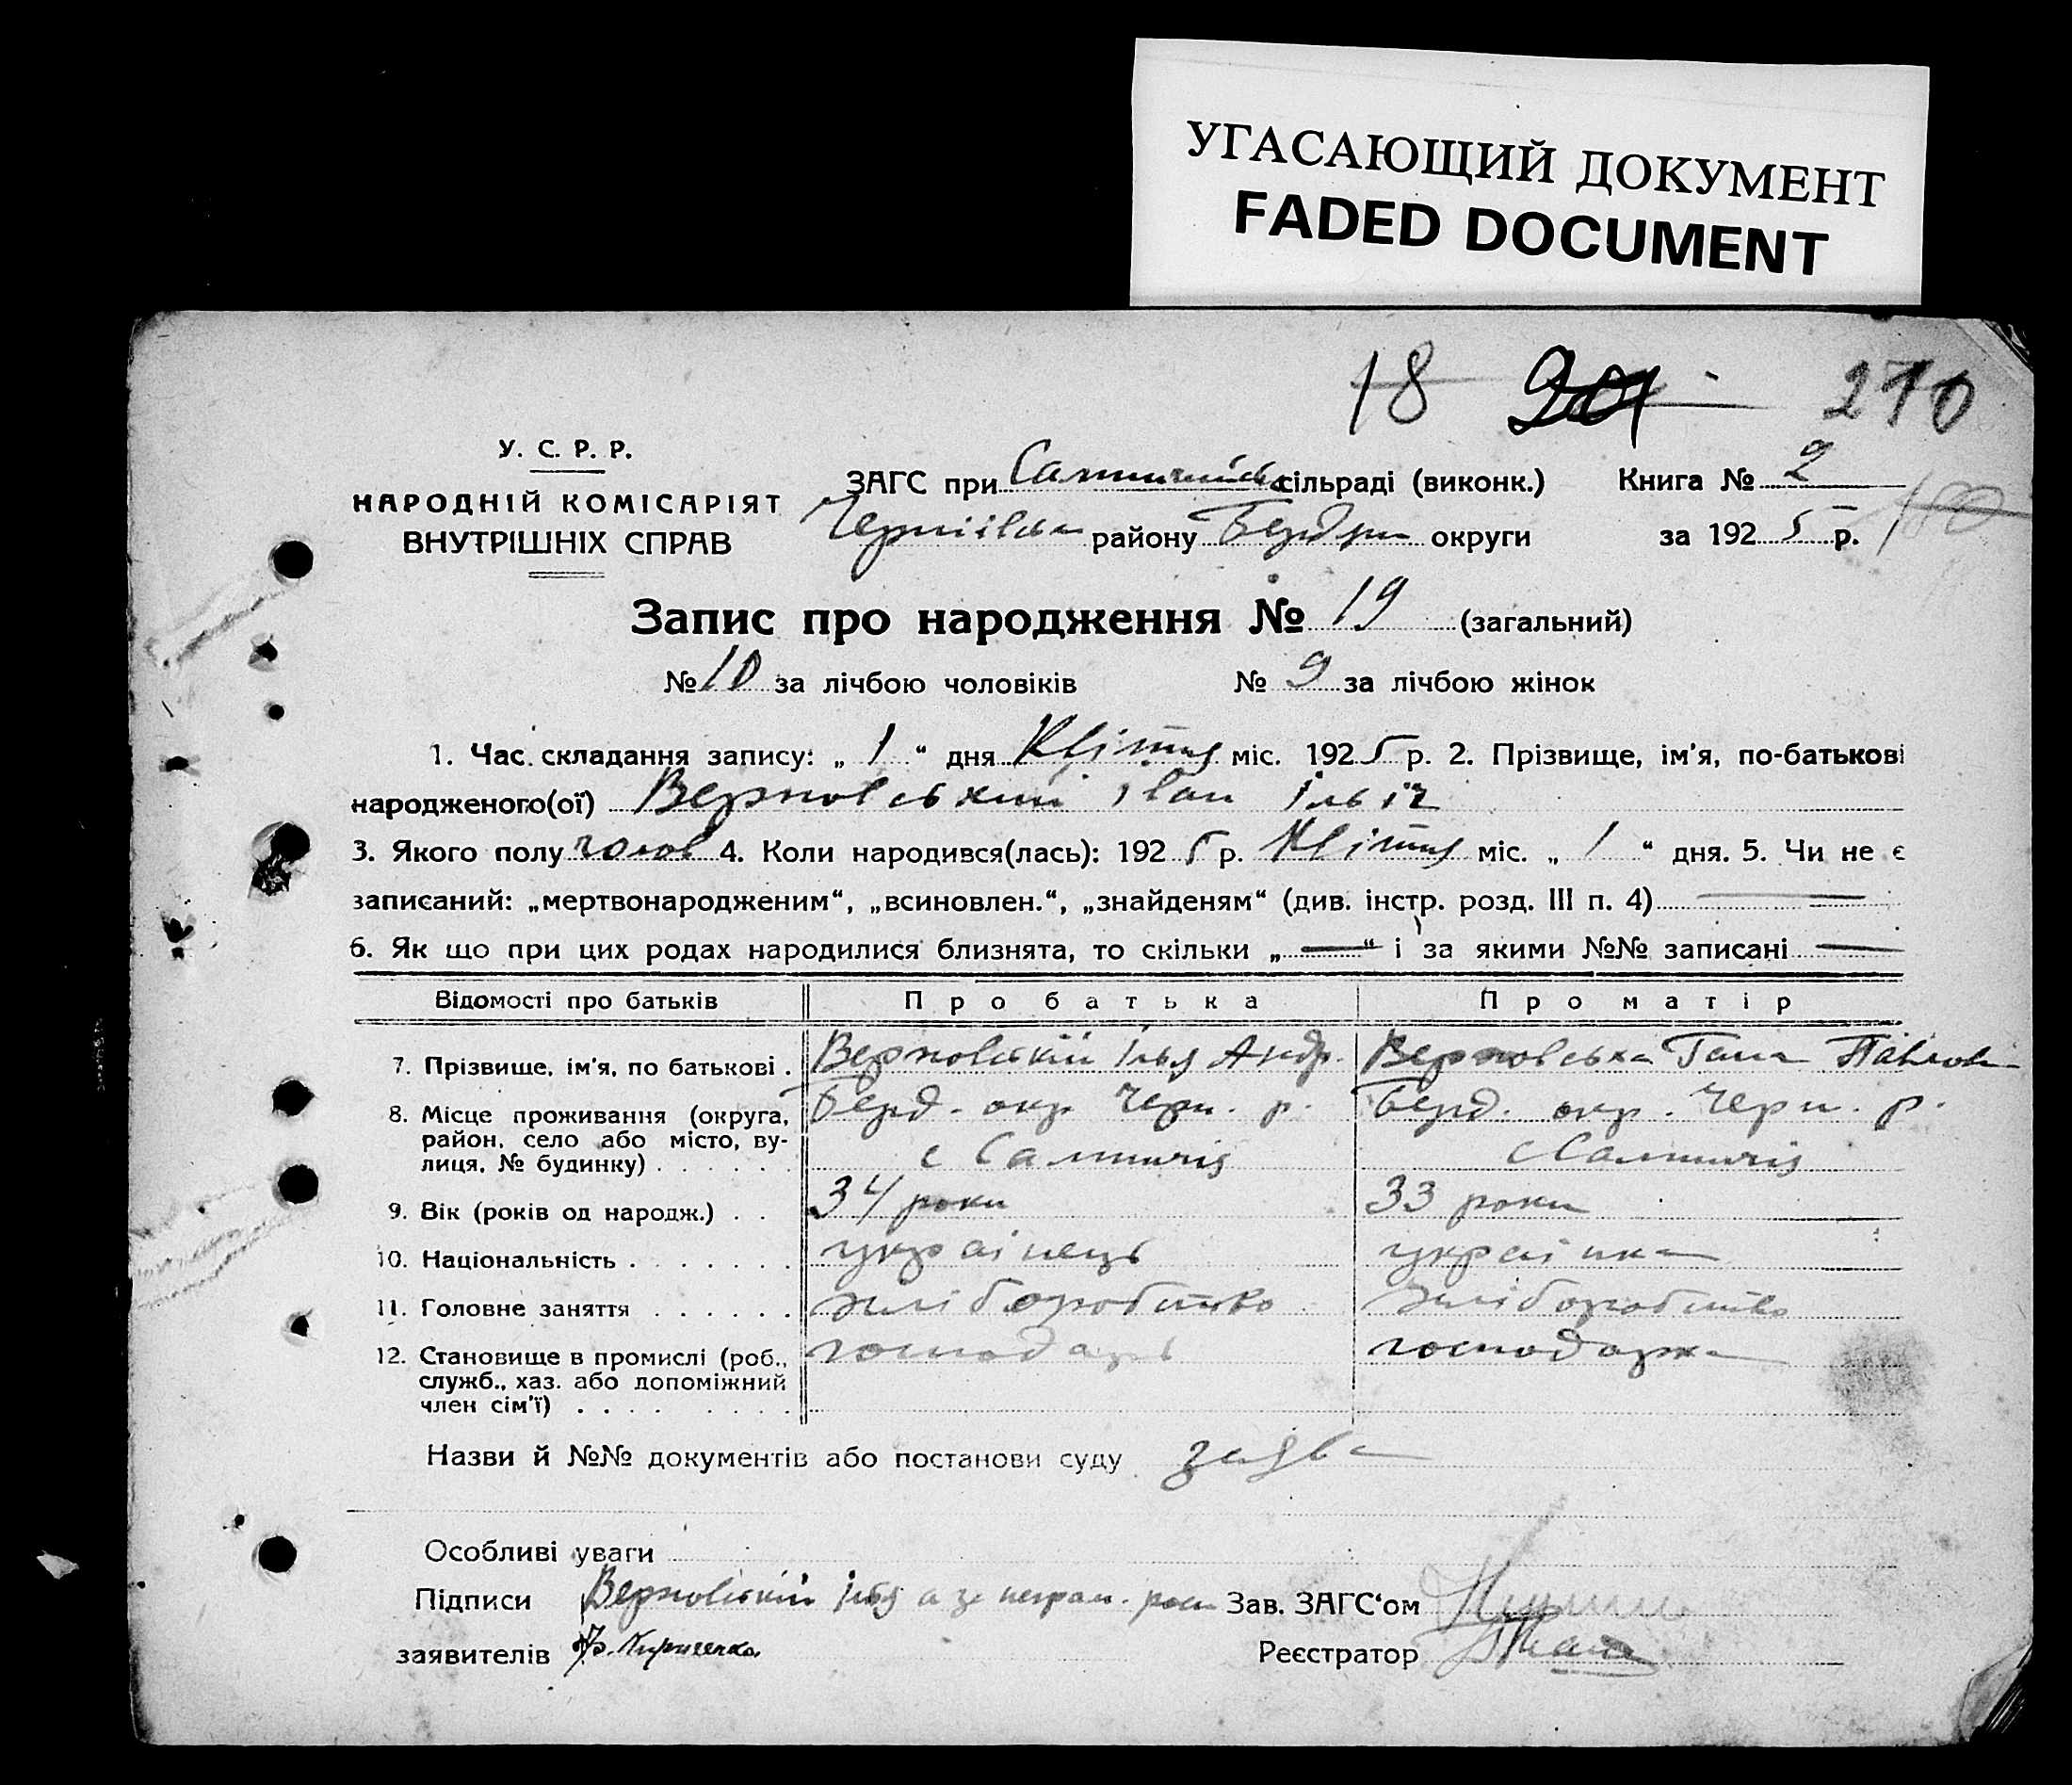 УГАСАЮЩИЙ ДОКУМЕНТ
FADED DOCUMENT
18 201 210
У. С. Р. Р.
НАРОДНІЙ КОМІСАРІЯТ
ВНУТРІШНІХ СПРАВ
ЗАГС при сільраді (виконк.) Книга № 2
району округи за 1925 р. 180
Запис про народження № 19 (загальний)
№ 10 за лічбою чоловіків № 9 за лічбою жінок
1. Час складання запису: „ 1 “ дня Квітня міс. 1925 р. 2. Прізвище, ім'я, по-батькові
народженого(ої) Верновський Іван Ільіч
3. Якого полу чолов 4. Коли народився(лась): 1925 р. Квітня міс. „ 1 “ дня. 5. Чи не є
записаний: „мертвонародженим“, „всиновлен.“, „знайденям“ (див. інстр. розд. III п. 4) —
6. Як що при цих родах народилися близнята, то скільки „—“ і за якими №№ записані —
Відомості про батьків Про батька Про матір
7. Прізвище, ім'я, по батькові . Верновський Ілья Андр. Верновська Гана Павлов
8. Місце проживання (округа, Берд. окр Черн. р. Берд. окр. Черн. р.
район, село або місто, ву-
лиця, № будинку) . . . . . . с Салтичія с Салтичія
9. Вік (років од народж.) . . 34 роки 33 роки
10. Національність . . . . . . . українець українка
11. Головне заняття . . . . . . хліборобство хліборобство
12. Становище в промислі (роб., господарь господарка
служб., хаз. або допоміжний
член сім'ї) . . . . . . . .
Назви й №№ документів або постанови суду заява
Особливі уваги
Підписи Верновській Ілья а за неграм. росп Зав. ЗАГС‘ом
заявителів Кириченко Реєстратор